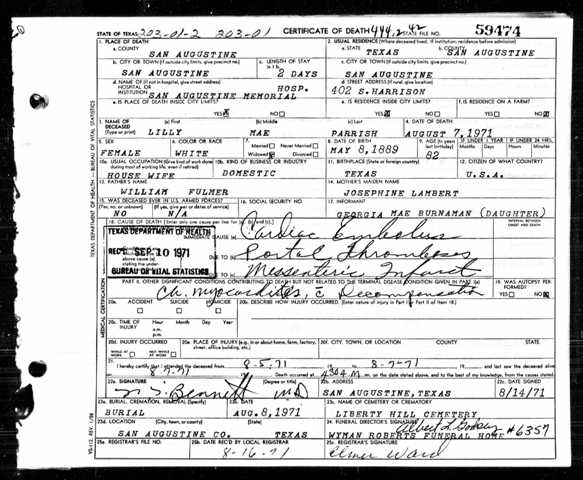 STATE OF TEXAS 203-01-2 203-01 CERTIFICATE OF DEATH 444.2 42 STATE FILE NO. 59474
1. PLACE OF DEATH 2. USUAL RESIDENCE (Where deceased lived. If institution: residence before admission)
a. COUNTY SAN AUGUSTINE a. STATE TEXAS b. COUNTY SAN AUGUSTINE
b. CITY OR TOWN (If outside city limits, give precinct no.) c. LENGTH OF STAY c. CITY OR TOWN (If outside city limits, give precinct no.)
SAN AUGUSTINE 2 DAYS SAN AUGUSTINE
d. NAME OF (If not in hospital, give street address) d. STREET ADDRESS (If rural, give location)
HOSPITAL OR INSTITUTION SAN AUGUSTINE MEMORIAL HOSP. 402 S.HARRISON
e. IS PLACE OF DEATH INSIDE CITY LIMITS? e. IS RESIDENCE INSIDE CITY LIMITS? f. IS RESIDENCE ON A FARM?
YES NO YES NO YES NO
3. NAME OF DECEASED (a) First (b) Middle (c) Last 4. DATE OF DEATH
(Type or print) LILLY MAE PARRISH AUGUST 7,1971
5. SEX 6. COLOR OR RACE 7. Married Never Married 8. DATE OF BIRTH 9. AGE (In years last birthday) IF UNDER 1 YEAR IF UNDER 24 HRS.
FEMALE WHITE Widowed Divorced MAY 8,1889 82 Months Days Hours Minutes
10a. USUAL OCCUPATION (Give kind of work done during most of working life, even if retired) 10b. KIND OF BUSINESS OR INDUSTRY 11. BIRTHPLACE (State or foreign country) 12. CITIZEN OF WHAT COUNTRY
HOUSE WIFE DOMESTIC TEXAS U.S.A.
13. FATHER'S NAME 14. MOTHER'S MAIDEN NAME
WILLIAM FULMER JOSEPHINE LAMBERT
15. WAS DECEASED EVER IN U.S. ARMED FORCES? 16. SOCIAL SECURITY NO. 17. INFORMANT
NO N/A GEORGIA MAE BURNAMAN (DAUGHTER)
18. CAUSE OF DEATH INTERVAL BETWEEN ONSET AND DEATH
TEXAS DEPARTMENT OF HEALTH
IMMEDIATE CAUSE (a) Cardiac Embolus
REC'D SEP 10 1971
Portal Thromboses
BUREAU OF VITAL STATISTICS
Messenteric Infarct
PART II. OTHER SIGNIFICANT CONDITIONS CONTRIBUTING TO DEATH BUT NOT RELATED TO THE TERMINAL DISEASE CONDITION GIVEN IN PART I(a) 19. WAS AUTOPSY PERFORMED?
Ch. myocarditis, c Decompensation YES NO
20a. ACCIDENT SUICIDE HOMICIDE 20b. DESCRIBE HOW INJURY OCCURRED.
20c. TIME OF INJURY Hour Month Day Year
a.m.
p.m.
20d. INJURY OCCURRED 20e. PLACE OF INJURY (e.g. in or about home, farm, factory, street, office building, etc.) 20f. CITY, TOWN, OR LOCATION COUNTY STATE
WHILE AT WORK NOT WHILE AT WORK
21. I hereby certify that I attended the deceased from 8-5-71 to 8-7-71 and last saw the deceased
Death occurred at m. on the date stated above, and to the best of my knowledge, from the causes stated.
22a. SIGNATURE 22b. ADDRESS 22c. DATE SIGNED
Bennett MD SAN AUGUSTINE,TEXAS 8/14/71
23a. BURIAL, CREMATION, REMOVAL (Specify) 23b. DATE 23c. NAME OF CEMETERY OR CREMATORY
BURIAL AUG.8,1971 LIBERTY HILL CEMETERY
23d. LOCATION (City, town, or county) (State) 24. FUNERAL DIRECTOR'S SIGNATURE
SAN AUGUSTINE CO. TEXAS WYMAN ROBERTS FUNERAL HOME #6357
25a. REGISTRAR'S FILE NO. 25b. DATE REC'D BY LOCAL REGISTRAR 25c. REGISTRAR'S SIGNATURE
8-16-71 Elmer Ward
TEXAS DEPARTMENT OF HEALTH—BUREAU OF VITAL STATISTICS
MEDICAL CERTIFICATION